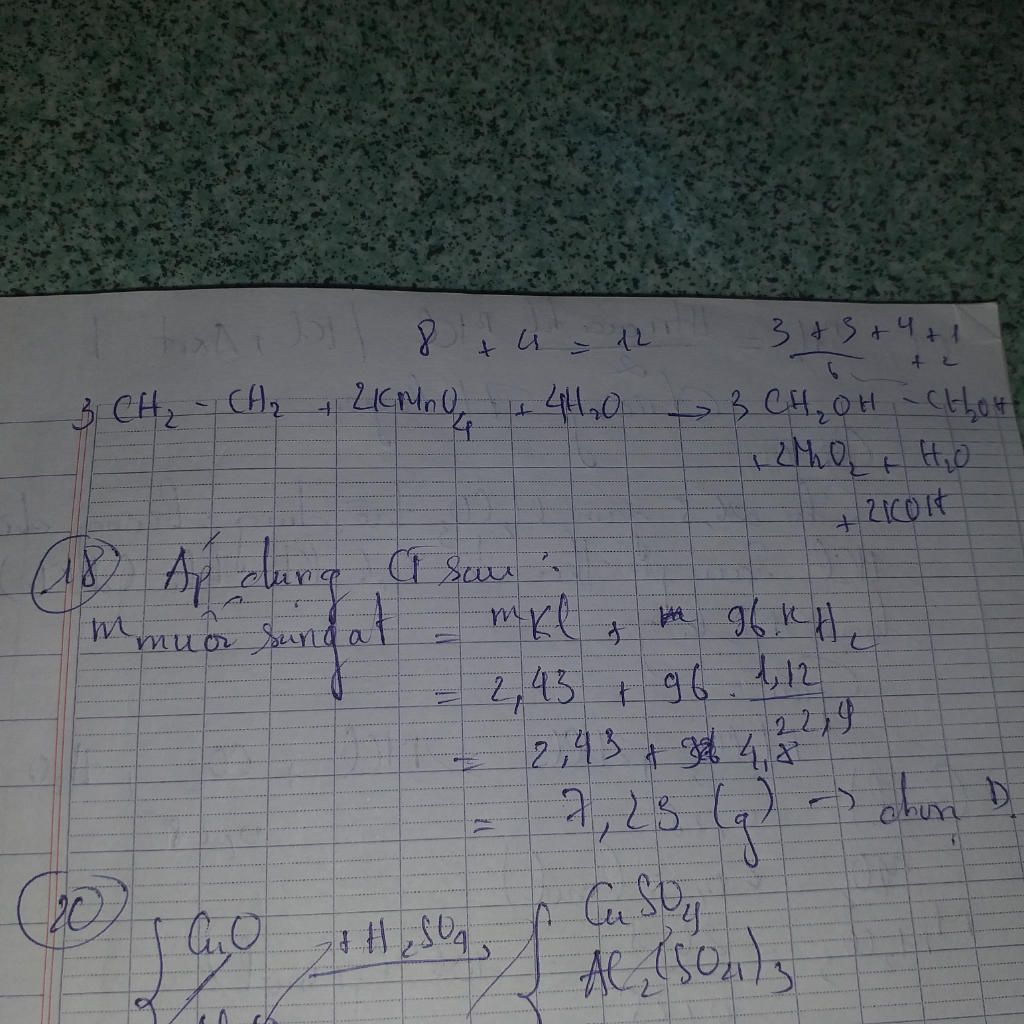 8 + 4 = 12
3 + 3 + 4 + 1 + 2
6
3 CH2 - CH2 + 2KMnO4 + 4H2O → 3 CH2OH - CH2OH
+ 2MnO2 + H2O
+ 2KOH
18 Áp dụng CT sau :
m muối sunfat = mKl + 96.nH2
= 2,43 + 96 . 1,12
22,4
= 2,43 + 4,8
= 7,23 (g) → chọn D.
20
{ CuO + H2SO4 { CuSO4
Al2(SO4)3